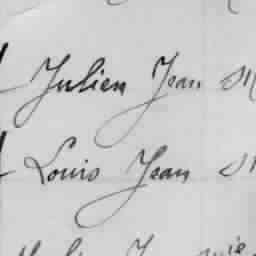 Julien Jean M
Louis Jean M